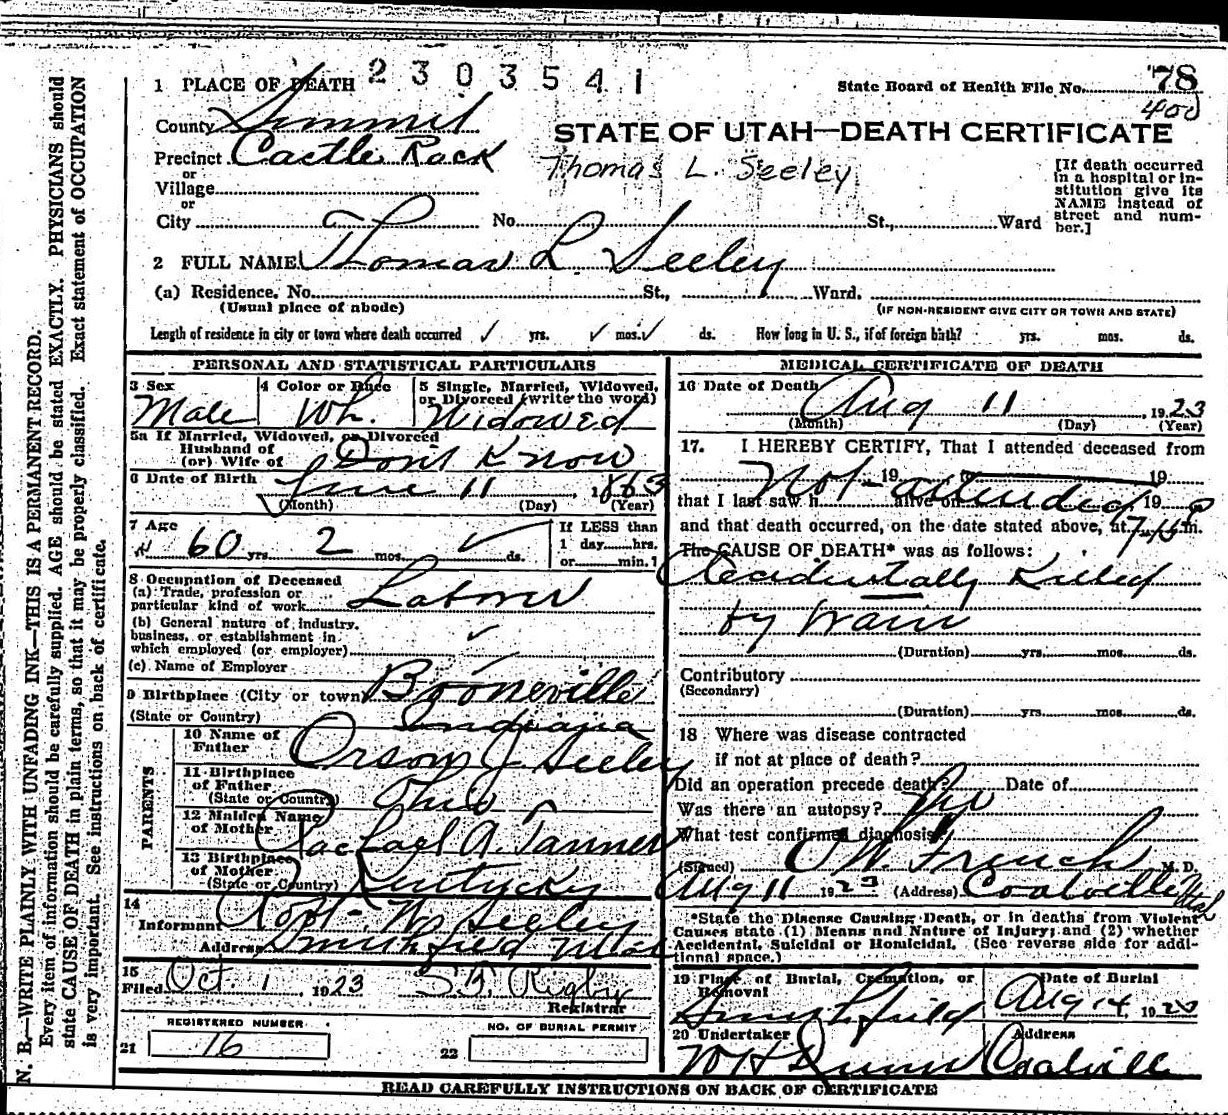 1 PLACE OF DEATH 2303541
State Board of Health File No. 78
400
County Summit
STATE OF UTAH—DEATH CERTIFICATE
Precinct Castle Rock
Thomas L. Seeley
or
Village
or
City No. St., Ward
[If death occurred
in a hospital or in-
stitution give its
NAME instead of
street and num-
ber.]
2 FULL NAME Thomas L. Seeley
(a) Residence. No. St., Ward.
(Usual place of abode)
(IF NON-RESIDENT GIVE CITY OR TOWN AND STATE)
Length of residence in city or town where death occurred ✓ yrs. ✓ mos. ✓ ds. How long in U. S., if of foreign birth? yrs. mos. ds.
PERSONAL AND STATISTICAL PARTICULARS
3 Sex
Male
4 Color or Race
Wh.
5 Single, Married, Widowed,
or Divorced (write the word)
Widowed
5a If Married, Widowed, or Divorced
Husband of
(or) Wife of
Dont Know
6 Date of Birth June 11, 1863
(Month) (Day) (Year)
7 Age
60 yrs. 2 mos. ✓ ds.
If LESS than
1 day......hrs.
or......min.?
8 Occupation of Deceased
(a) Trade, profession or
particular kind of work Laborer
(b) General nature of industry,
business, or establishment in
which employed (or employer) ✓
(c) Name of Employer
9 Birthplace (City or town) Booneville
(State or Country) Indiana
PARENTS
10 Name of
Father Orson J. Seeley
11 Birthplace
of Father
(State or Country) Ohio
12 Maiden Name
of Mother Rachael A. Tanner
13 Birthplace
of Mother
(State or Country) Kentucky
14
Informant Robt. Wm Seeley
Address Smithfield Utah
15
Filed Oct. 1, 1923 Rigby
Registrar
REGISTERED NUMBER
21 16
NO. OF BURIAL PERMIT
22
MEDICAL CERTIFICATE OF DEATH
16 Date of Death Aug 11, 1923
(Month) (Day) (Year)
17. I HEREBY CERTIFY, That I attended deceased from
Not attended 19 19
that I last saw h alive on 19
and that death occurred, on the date stated above, at 7-15 P m.
The CAUSE OF DEATH* was as follows:
Accidentally Killed
by train
(Duration) yrs. mos. ds.
Contributory
(Secondary)
(Duration) yrs. mos. ds.
18 Where was disease contracted
if not at place of death?
Did an operation precede death? Date of
Was there an autopsy? No
What test confirmed diagnosis?
(Signed) O W. French M. D.
Aug 11 1923 (Address) Coalville Utah
*State the Disease Causing Death, or in deaths from Violent
Causes state (1) Means and Nature of Injury; and (2) whether
Accidental, Suicidal or Homicidal. (See reverse side for addi-
tional space.)
19 Place of Burial, Cremation, or
Removal
Smithfield
Date of Burial
Aug 14, 1923
20 Undertaker
Address
W H Coalville
READ CAREFULLY INSTRUCTIONS ON BACK OF CERTIFICATE
N. B.—WRITE PLAINLY WITH UNFADING INK—THIS IS A PERMANENT RECORD.
Every item of information should be carefully supplied. AGE should be stated EXACTLY. PHYSICIANS should
state CAUSE OF DEATH in plain terms, so that it may be properly classified. Exact statement of OCCUPATION
is very important. See instructions on back of certificate.